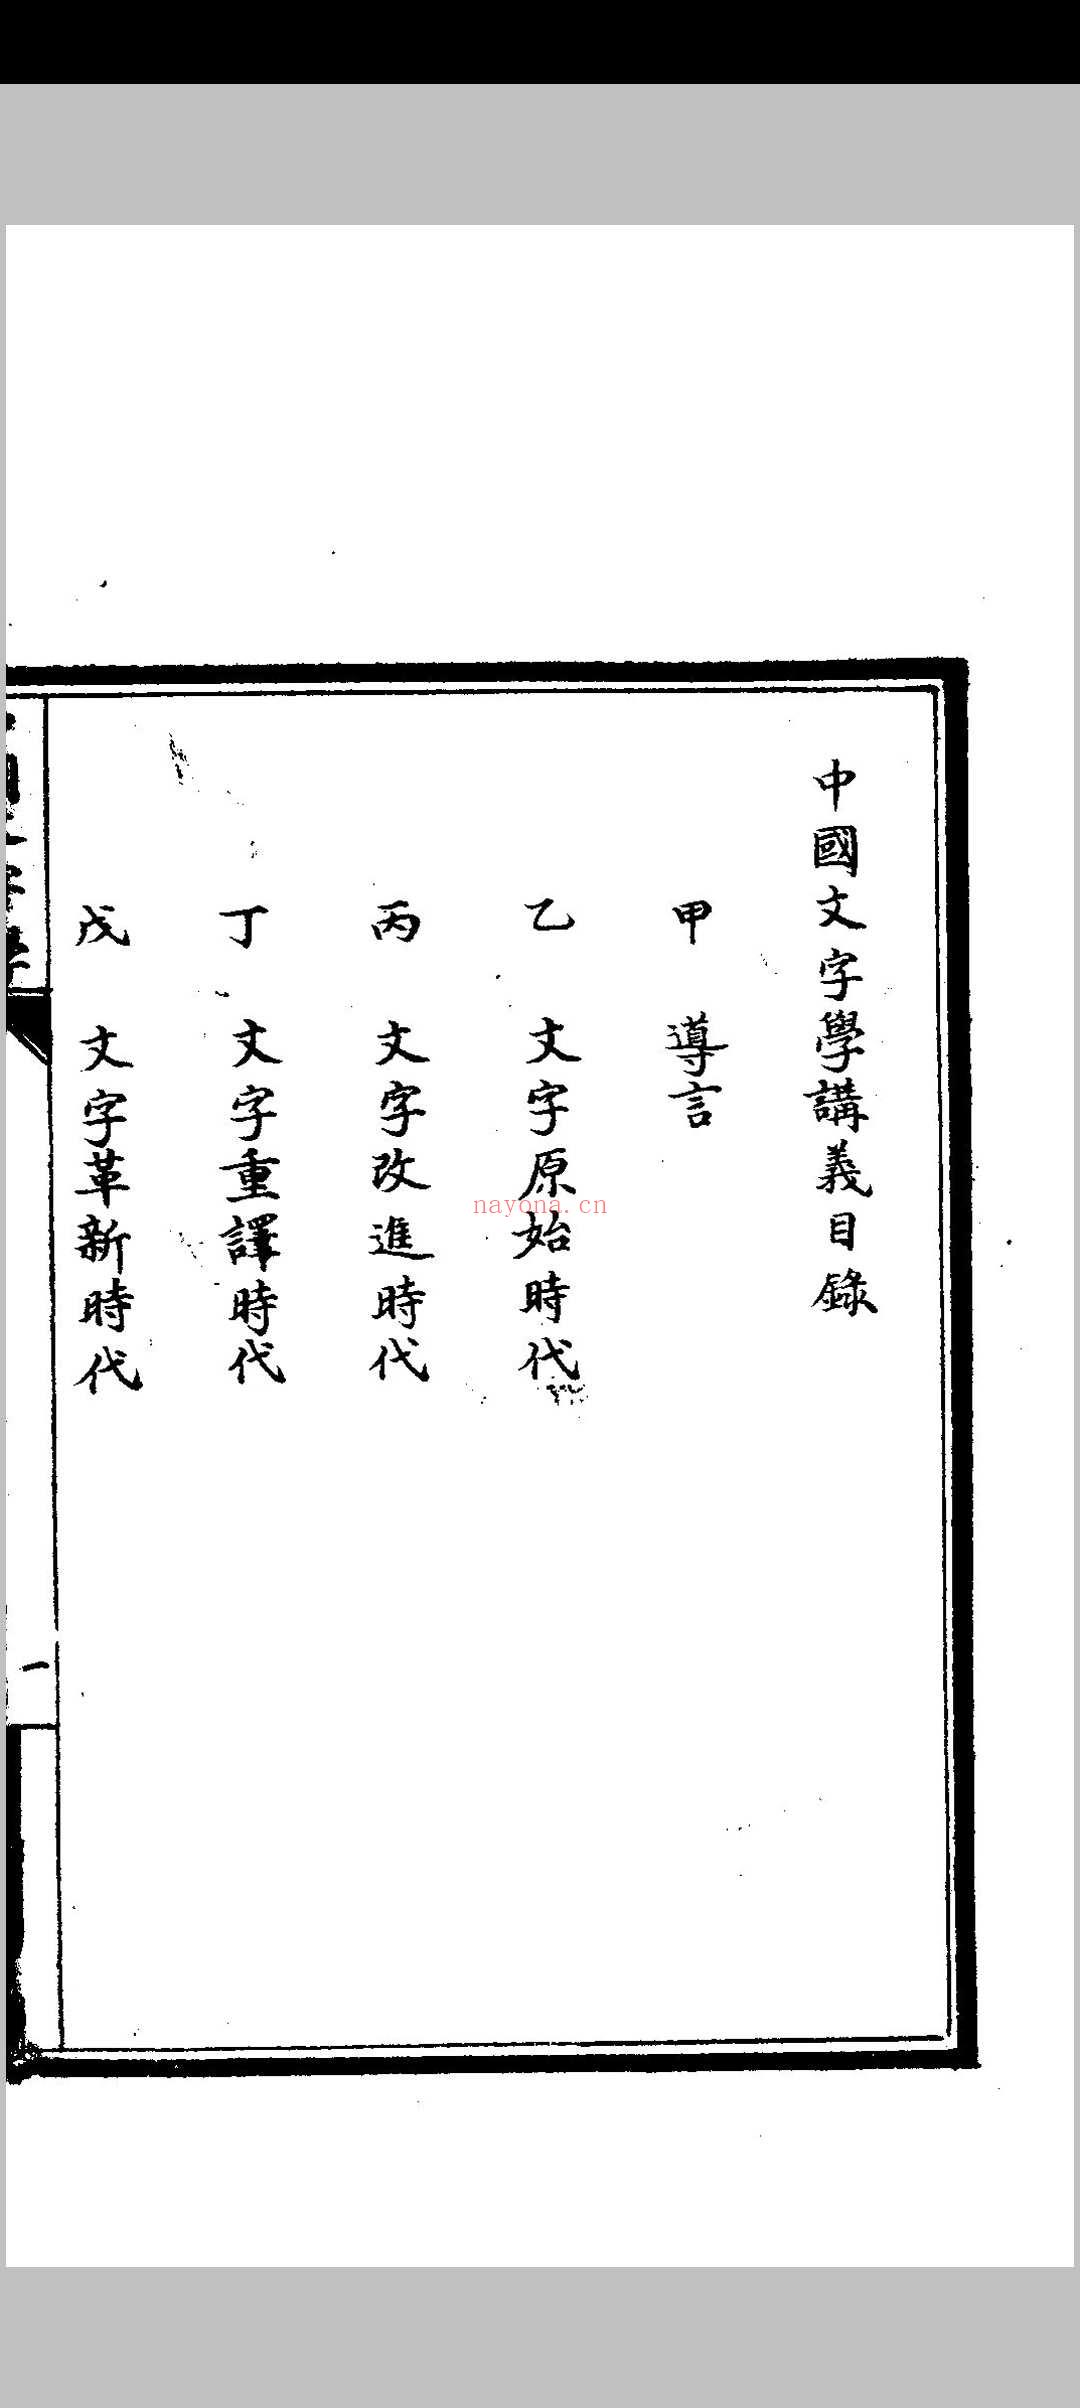 中國文字學講義目錄
甲 導言
乙 文字原始時代
丙 文字改進時代
丁 文字重譯時代
戊 文字革新時代
一
nayona.cn